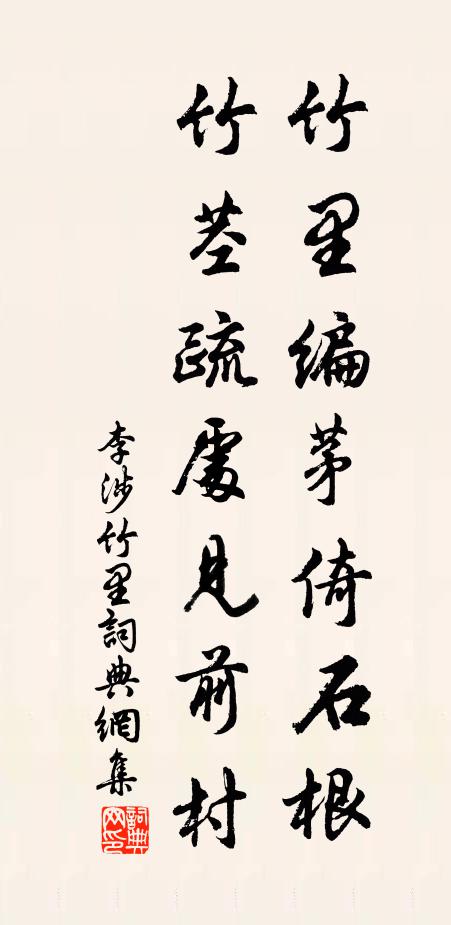 竹里編茅倚石根
竹茎疏處見前村
李涉竹里詞典網集
詞典網印